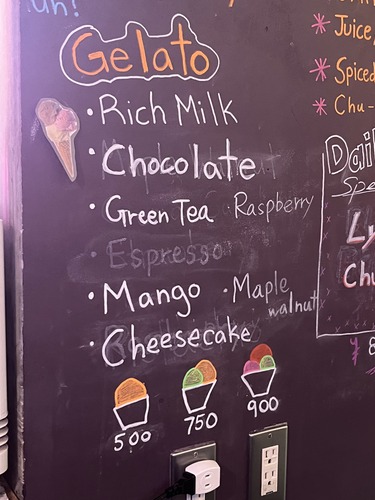 uh!
Gelato
• Rich Milk
• Chocolate
• Green Tea • Raspberry
Espresso
• Mango • Maple walnut
• Cheesecake
500 750 900
* Juice,
* Spiced
* Chu-
Dail
Spe
Ly
Chu
¥ 8